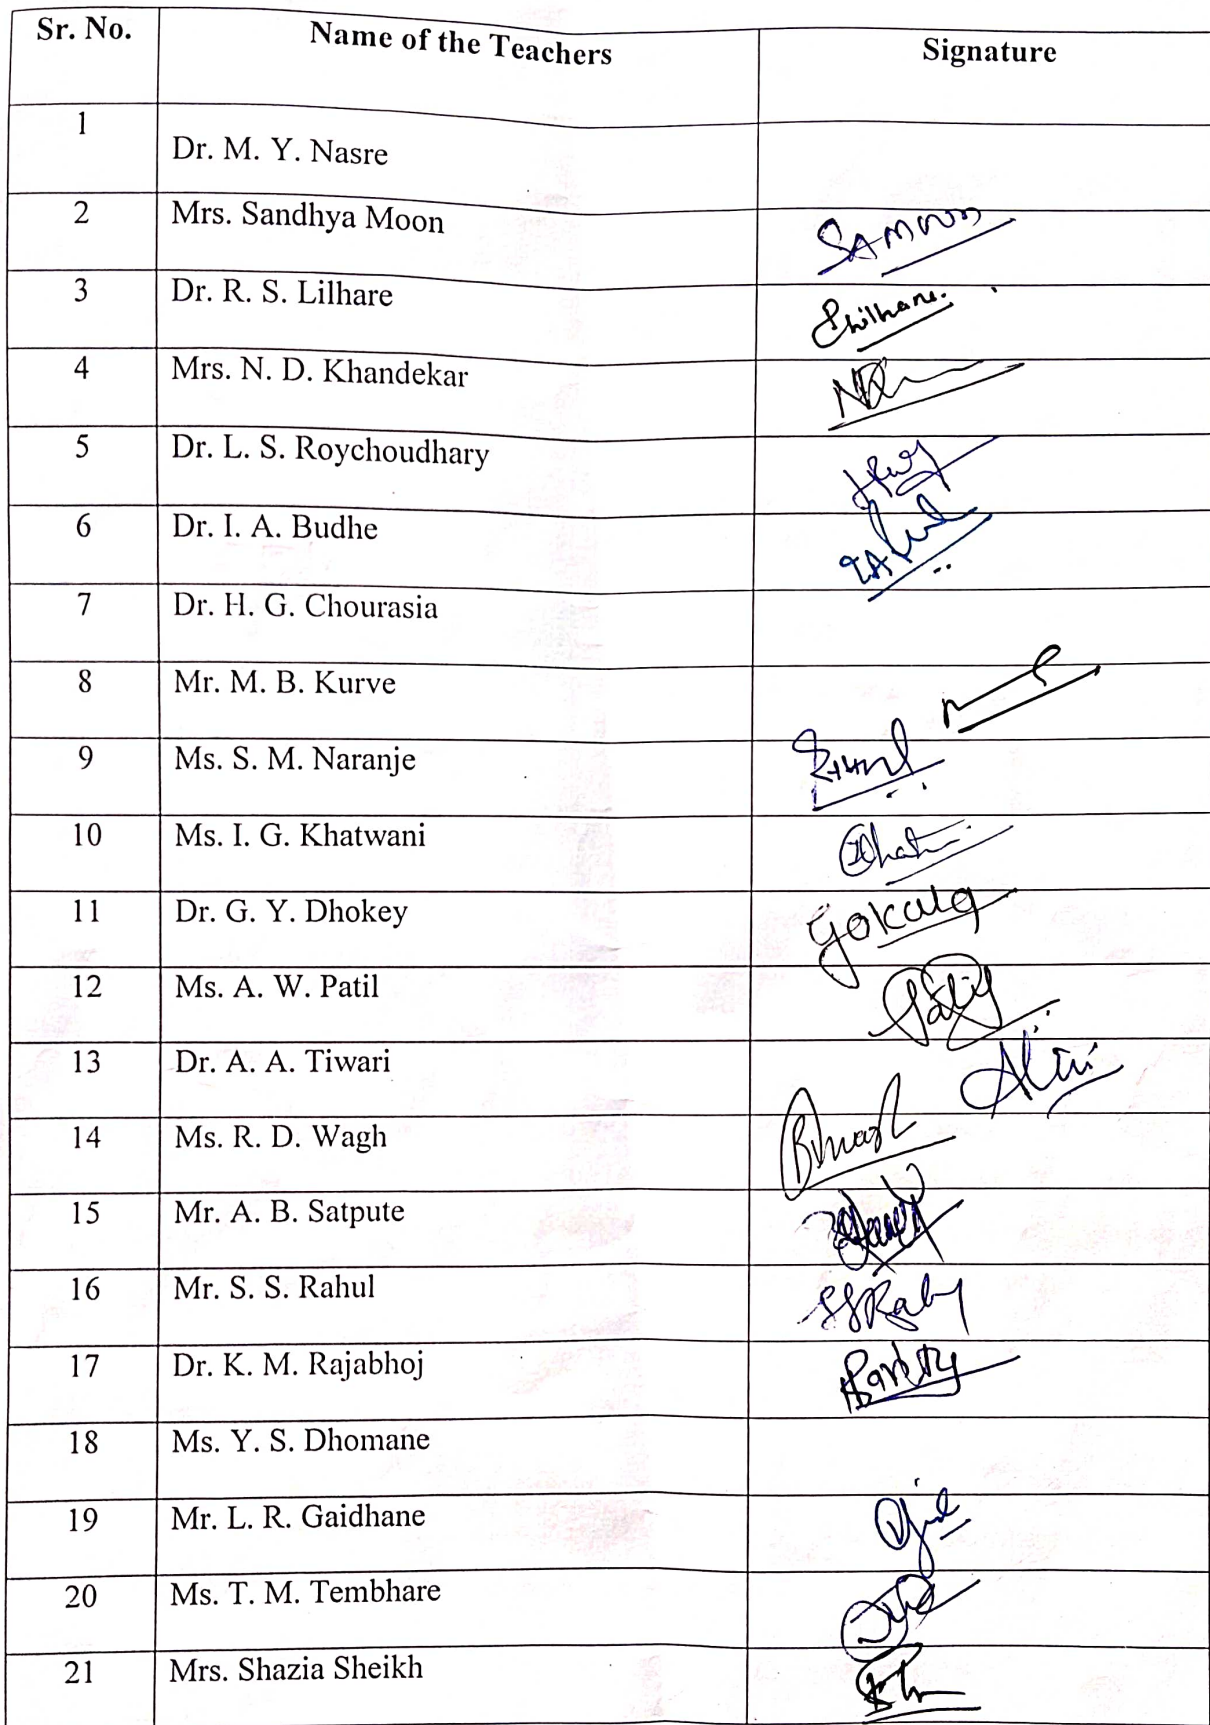 Sr. No. Name of the Teachers Signature
1 Dr. M. Y. Nasre
2 Mrs. Sandhya Moon SAMoon
3 Dr. R. S. Lilhare
4 Mrs. N. D. Khandekar
5 Dr. L. S. Roychoudhary
6 Dr. I. A. Budhe
7 Dr. H. G. Chourasia
8 Mr. M. B. Kurve
9 Ms. S. M. Naranje
10 Ms. I. G. Khatwani
11 Dr. G. Y. Dhokey
12 Ms. A. W. Patil Patil
13 Dr. A. A. Tiwari
14 Ms. R. D. Wagh
15 Mr. A. B. Satpute
16 Mr. S. S. Rahul SSRahul
17 Dr. K. M. Rajabhoj
18 Ms. Y. S. Dhomane
19 Mr. L. R. Gaidhane
20 Ms. T. M. Tembhare
21 Mrs. Shazia Sheikh